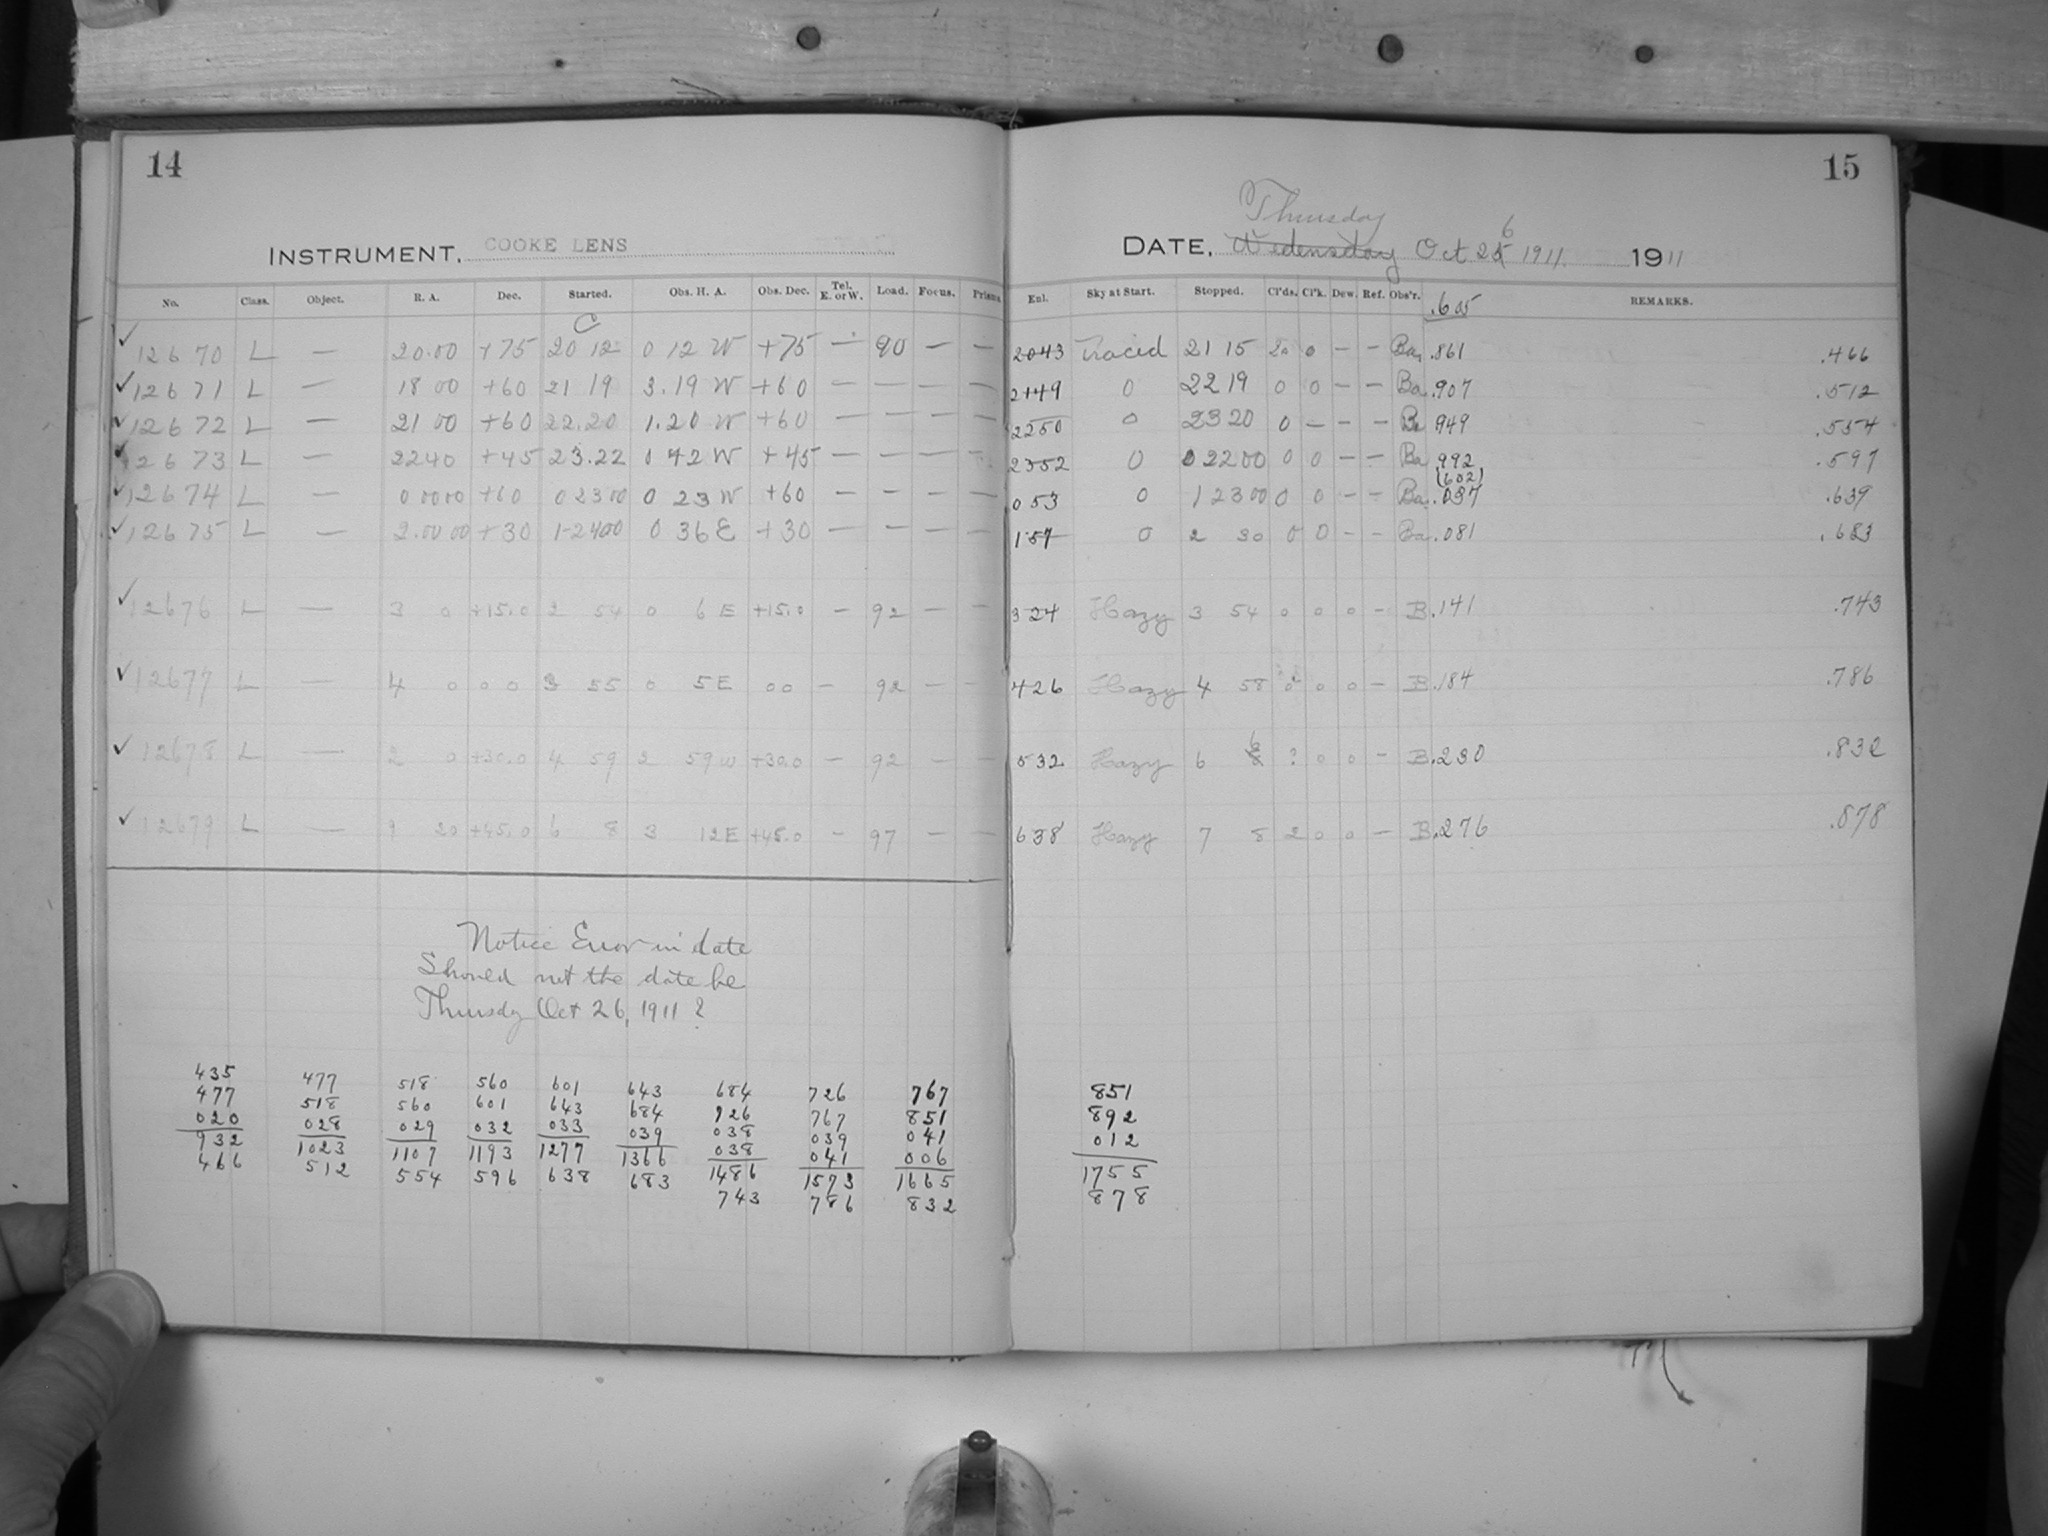 14
INSTRUMENT, COOKE LENS
No. Class. Object. R. A. Dec. Started. Obs. H. A. Obs. Dec. Tel. E. or W. Load. Focus. Prisms
✓ 12670 L — 20.00 +75 20 12 0 12 W +75 — 90 — —
✓ 12671 L — 18 00 +60 21 19 3.19 W +60 — — — —
✓ 12672 L — 21 00 +60 22.20 1.20 W +60 — — — —
✓ 12673 L — 2240 +45 23.22 0 42 W +45 — — — —
✓ 12674 L — 0 00 00 +60 0 23 00 0 23 W +60 — — — —
✓ 12675 L — 2.00 00 +30 1-24 00 0 36 E +30 — — — —
✓ 12676 L — 3 0 +15.0 2 54 0 6 E +15.0 — 92 — —
✓ 12677 L — 4 0 0 0 3 55 0 5 E 00 — 92 — —
✓ 12678 L — 2 0 +30.0 4 59 2 59 W +30.0 — 92 — —
✓ 12679 L — 9 20 +45.0 6 8 3 12 E +45.0 — 97 — —
Notice Error in date
Should not the date be
Thursdy Oct 26, 1911 ?
435 477 518 560 601 643 684 726 767
477 518 560 601 643 684 726 767 851
020 028 029 032 033 039 038 039 041
932 1023 1107 1193 1277 1366 038 041 006
466 512 554 596 638 683 1486 1573 1665
743 786 832
15
Thursday
DATE, Wedensday Oct 26 1911. 1911
Enl. Sky at Start. Stopped. Cl'ds. Cl'k. Dew. Ref. Obs'r. .605 REMARKS.
2043 21 15 0 — — Ba. .861 .466
2149 0 22 19 0 0 — — Ba .907 .512
2250 0 23 20 0 — — — Ba 949 .554
2352 0 0 22 00 0 0 — — Ba .992 .597
(602)
053 0 1 23 00 0 0 — — Ba .037 .639
157 0 2 30 0 0 — — Ba .081 .683
324 Hazy 3 54 0 0 0 — B .141 .743
426 Hazy 4 58 0 0 — B .184 .786
532 Hazy 6 6 ? 0 0 — B .230 .832
638 Hazy 7 8 2 0 0 — B .276 .878
851
892
012
1755
878